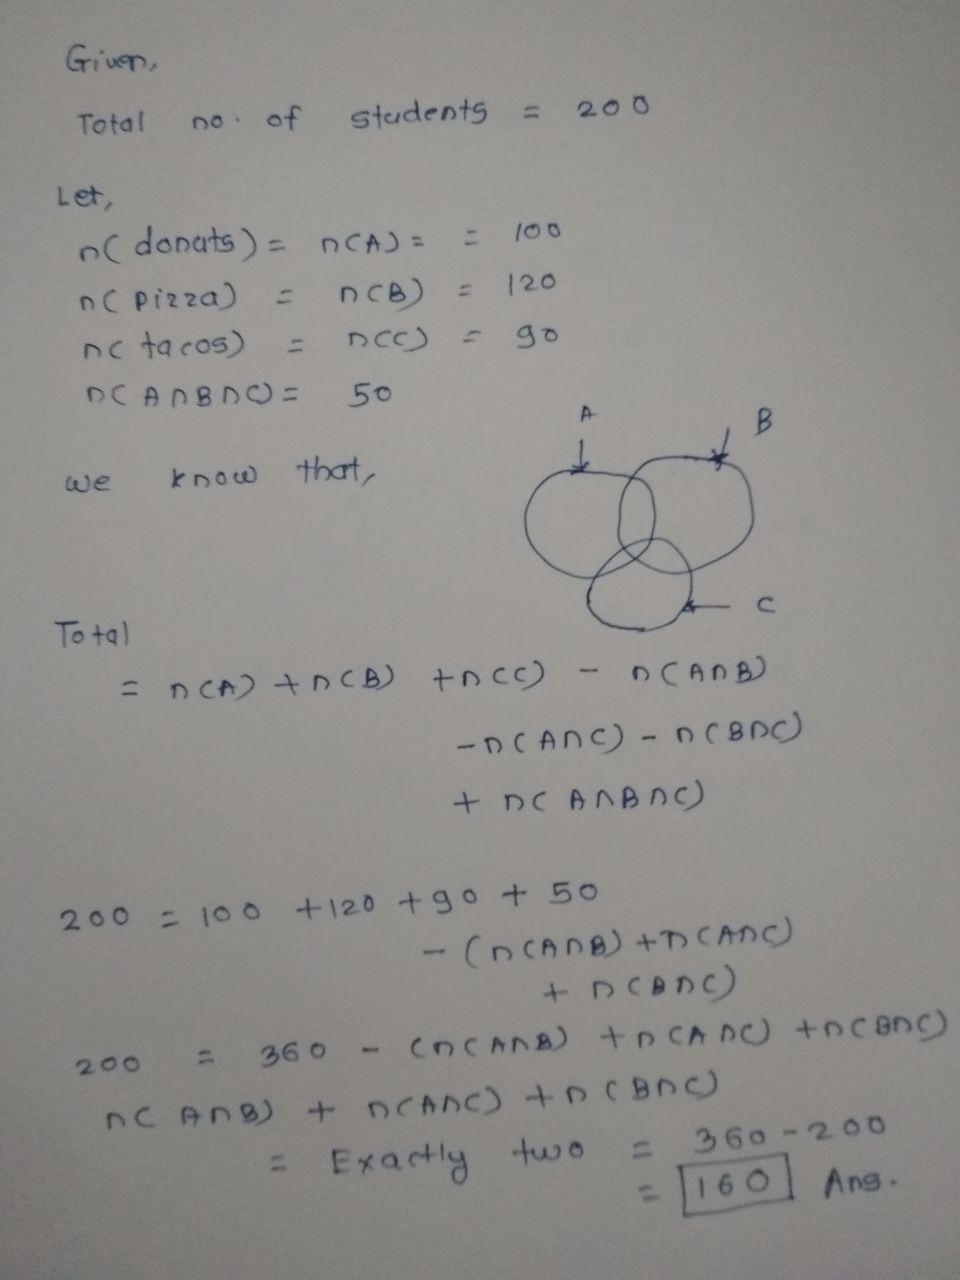 Given,
Total no. of students = 200
Let,
n( donats) = n(A) = = 100
n( pizza) = n(B) = 120
n( tacos) = n(C) = 90
n( A∩B∩C) = 50
A
B
we know that,
C
Total
= n(A) + n(B) + n(C) - n(A∩B)
-n(A∩C) - n(B∩C)
+ n( A∩B∩C)
200 = 100 +120 +90 + 50
- (n(A∩B) + n(A∩C)
+ n(B∩C)
200 = 360 - (n(A∩B) + n(A∩C) + n(B∩C)
n( A∩B) + n(A∩C) + n(B∩C)
= Exactly two = 360-200
= 160 Ans.